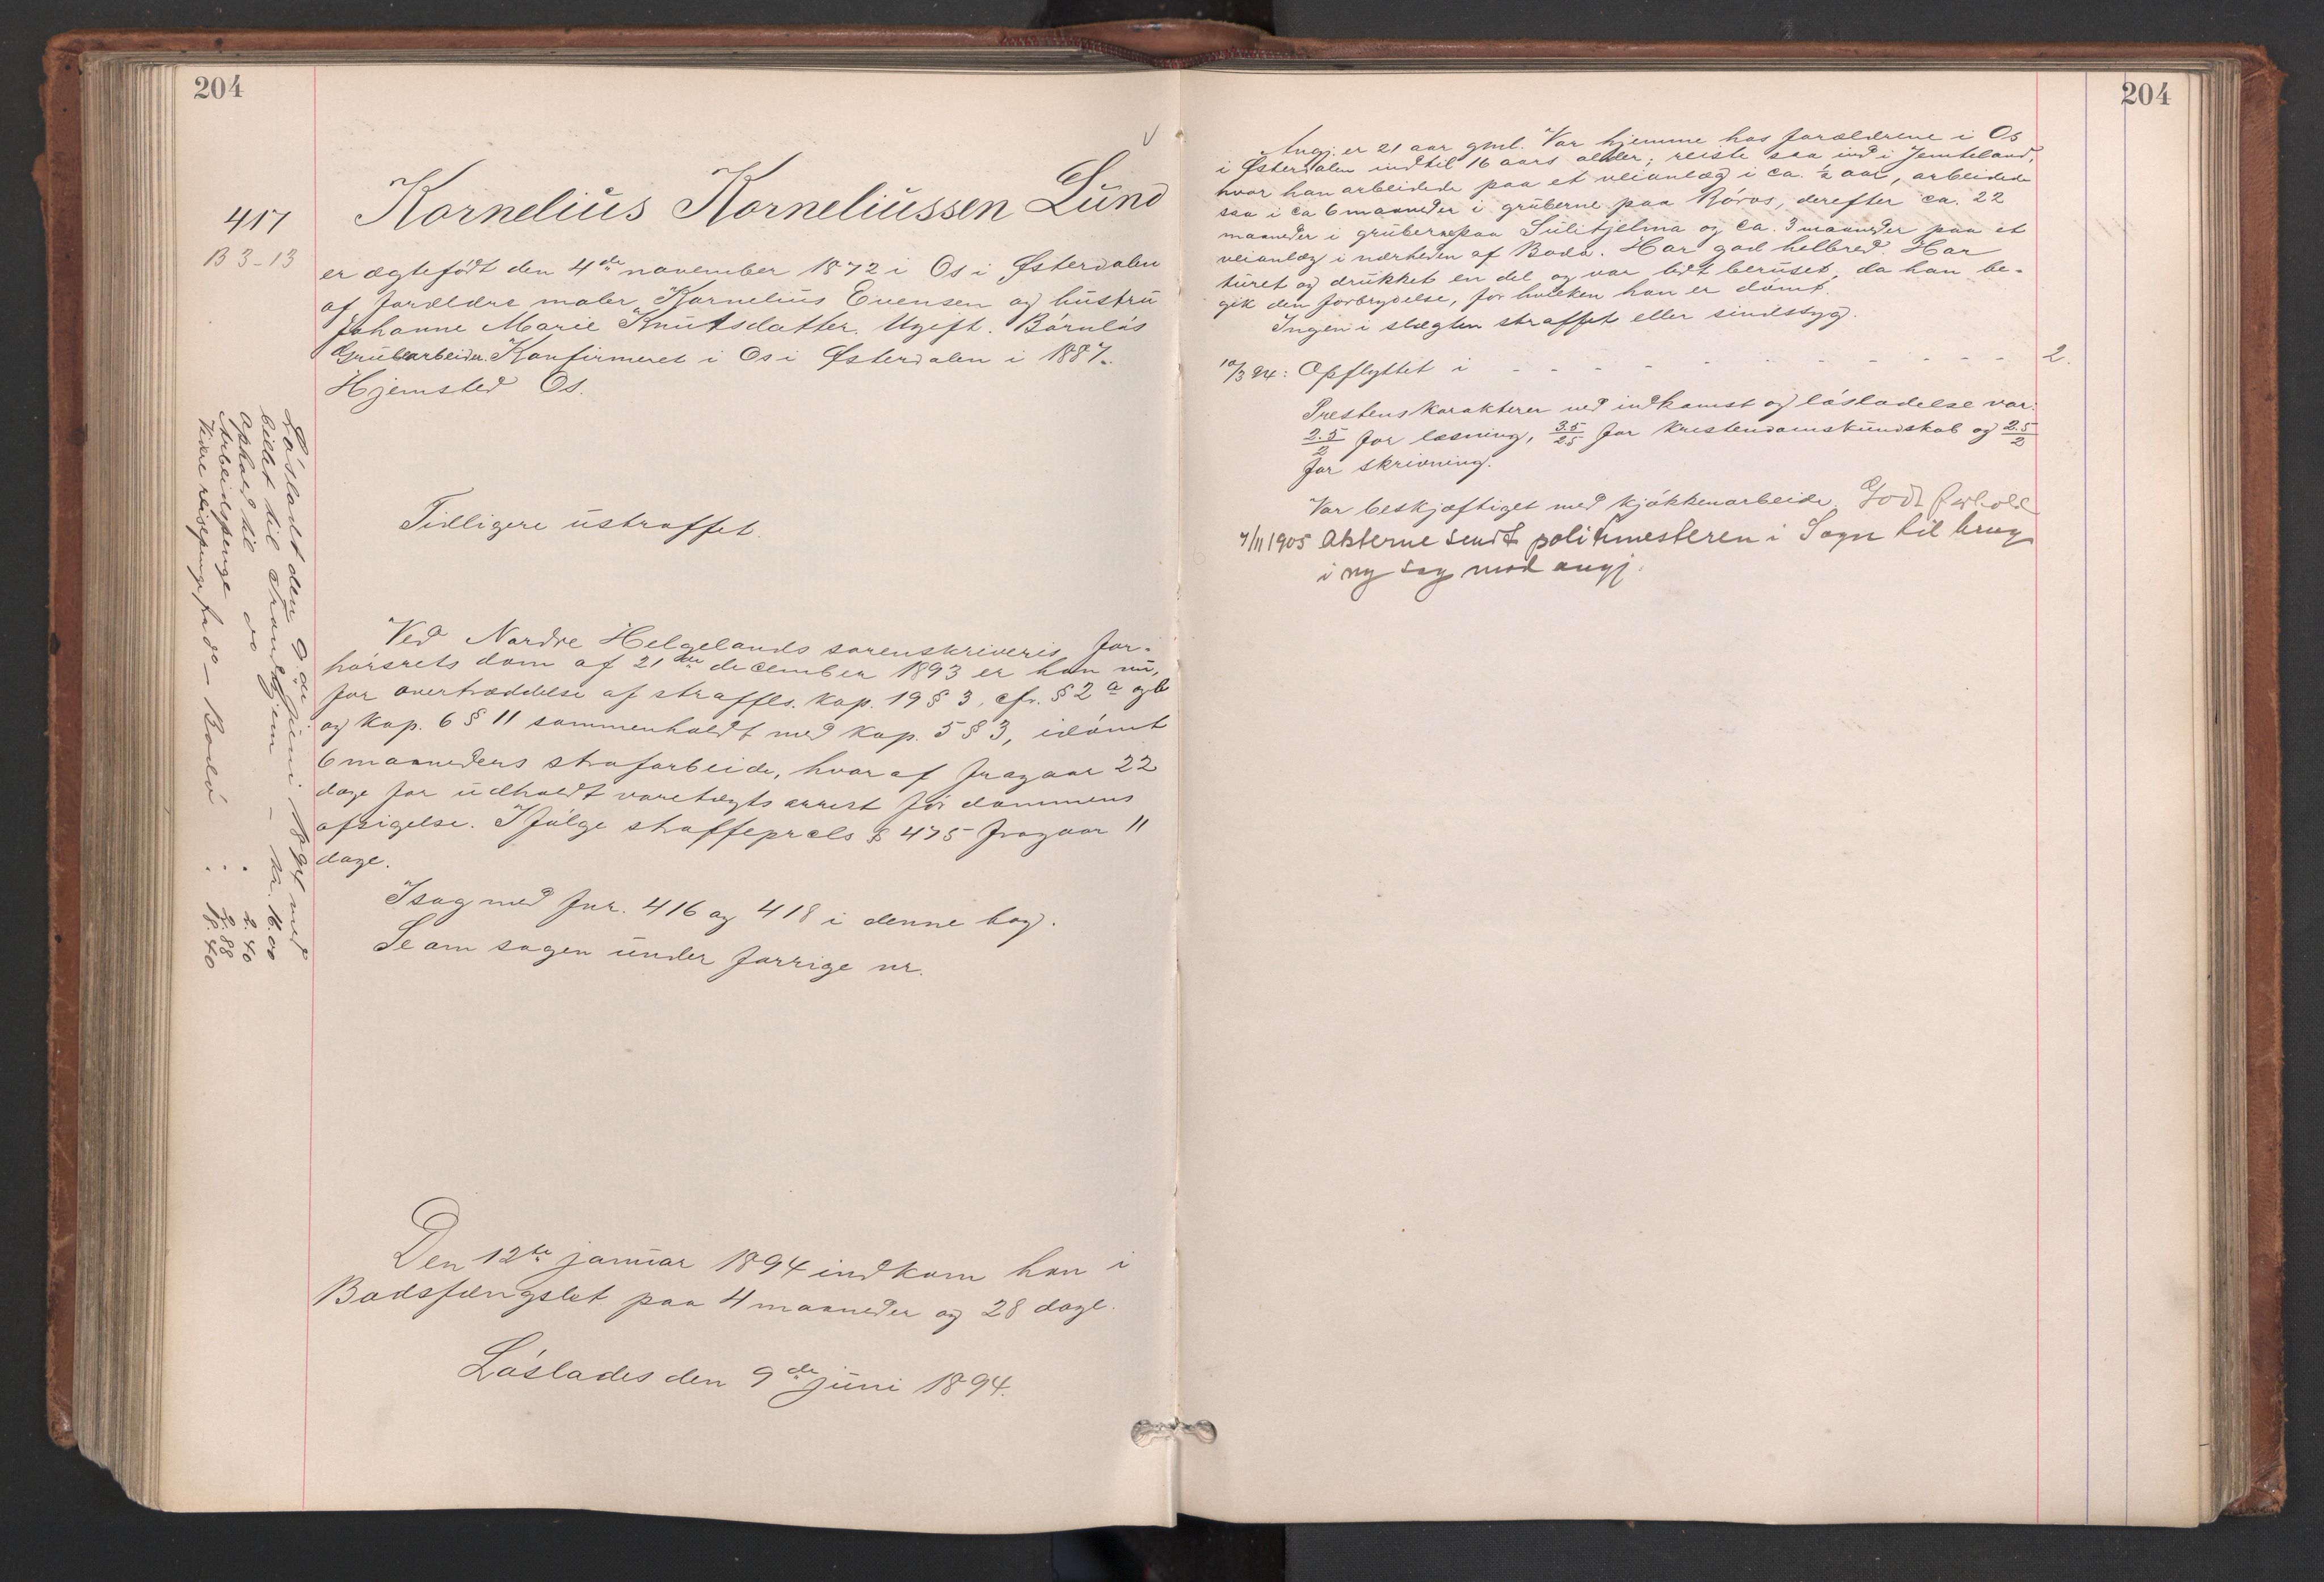 204
417
B 3-13
Kornelius Korneliussen Lund
er ægtefødt den 4de november 1872 i Os i Østerdalen
af forældre maler Kornelius Evensen og hustru
Johanne Marie Knutsdatter. Ugift. Barnløs
Grubearbeider. Konfirmeret i Os i Østerdalen i 1887.
Hjemsted Os.
Tidligere ustraffet.
Ved Nordre Helgelands sorenskriveris for-
hørsrets dom af 21de december 1893 er han nu,
for overtrædelse af straffels. kap. 19 § 3, cfr. § 2 a og b
og kap. 6 § 11 sammenholdt med kap. 5 § 3, idømt
6 maaneders strafarbeide, hvoraf fragaar 22
dage for udholdt varetægtsarrest før dommens
afsigelse. Ifølge straffeprcls § 475 fragaar 11
dage.
I sag med fnr. 416 og 418 i denne bog.
Se om sagen under forrige nr.
Den 12te januar 1894 indkom han i
Bodsfængslet paa 4 maaneder og 28 dage.
Løslades den 9de juni 1894.
Løsladt den 9de juni 1894 med
billet til Trondhjem - Kr. 16.00
Ophold til do . 2.40
Arbeidspenge : 2.88
Videre reisepenge fra do - Bodø . 8.40
204
Angj. er 21 aar gml. Var hjemme hos forældrene i Os
i Østerdalen indtil 16 aars alder; reiste saa ind i Jemteland,
hvor han arbeidede paa et veianlæg i ca. ½ aar, arbeidede
saa i ca 6 maaneder i gruberne paa Røros, derefter ca. 22
maaneder i gruberne paa Sulitjelma og ca. 3 maaneder paa et
veianlæg i nærheden af Bodø. Har god helbred. Har
turet og drukket en del og var lidt beruset, da han be-
gik den forbrydelse, for hvilken han er dømt.
Ingen i slægten straffet eller sindssyg.
10/3 94: Opflyttet i - - - - - - - - - - 2.
Prestens karakterer ved indkomst og løsladelse var:
2.5/2 for læsning, 3.5/2.5 for kristendomskundskab og 2.5/2
for skrivning.
Var beskjæftiget med kjøkkenarbeide. Godt forhold
7/11 1905 Akterne sendt politimesteren i Sogn til brug
i ny sag mod angj.